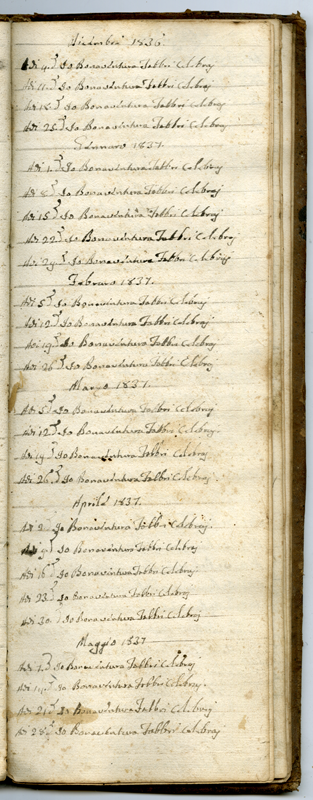 Dicembre 1836
Adi 4 d.º Io Bonaventura Fabbri Celebraj
Adi 11 d.º Io Bonaventura Fabbri Celebraj
Adi 18 d.º Io Bonaventura Fabbri Celebraj
Adi 25 d.º Io Bonaventura Fabbri Celebraj
Gennaro 1837.
Adi 1 d.º Io Bonaventura Fabbri Celebraj
Adi 8 d.º Io Bonaventura Fabbri Celebraj
Adi 15 d.º Io Bonaventura Fabbri Celebraj
Adi 22 d.º Io Bonaventura Fabbri Celebraj
Adi 29 d.º Io Bonaventura Fabbri Celebraj
Febraro 1837.
Adi 5 d.º Io Bonaventura Fabbri Celebraj
Adi 12 d.º Io Bonaventura Fabbri Celebraj
Adi 19 d.º Io Bonaventura Fabbri Celebraj
Adi 26 d.º Io Bonaventura Fabbri Celebraj
Marzo 1837.
Adi 5 d.º Io Bonaventura Fabbri Celebraj
Adi 12 d.º Io Bonaventura Fabbri Celebraj
Adi 19 d.º Io Bonaventura Fabbri Celebraj
Adi 26 d.º Io Bonaventura Fabbri Celebraj
Aprile 1837.
Adi 2 Io Bonaventura Fabbri Celebraj
Adi 9 d.º Io Bonaventura Fabbri Celebraj
Adi 16 d.º Io Bonaventura Fabbri Celebraj
Adi 23 d.º Io Bonaventura Fabbri Celebraj
Adi 30 Io Bonaventura Fabbri Celebraj
Maggio 1837
Adi 7 d.º Io Bonaventura Fabbri Celebraj
Adi 14 d.º Io Bonaventura Fabbri Celebraj
Adi 21 d.º Io Bonaventura Fabbri Celebraj
Adi 28 d.º Io Bonaventura Fabbri Celebraj